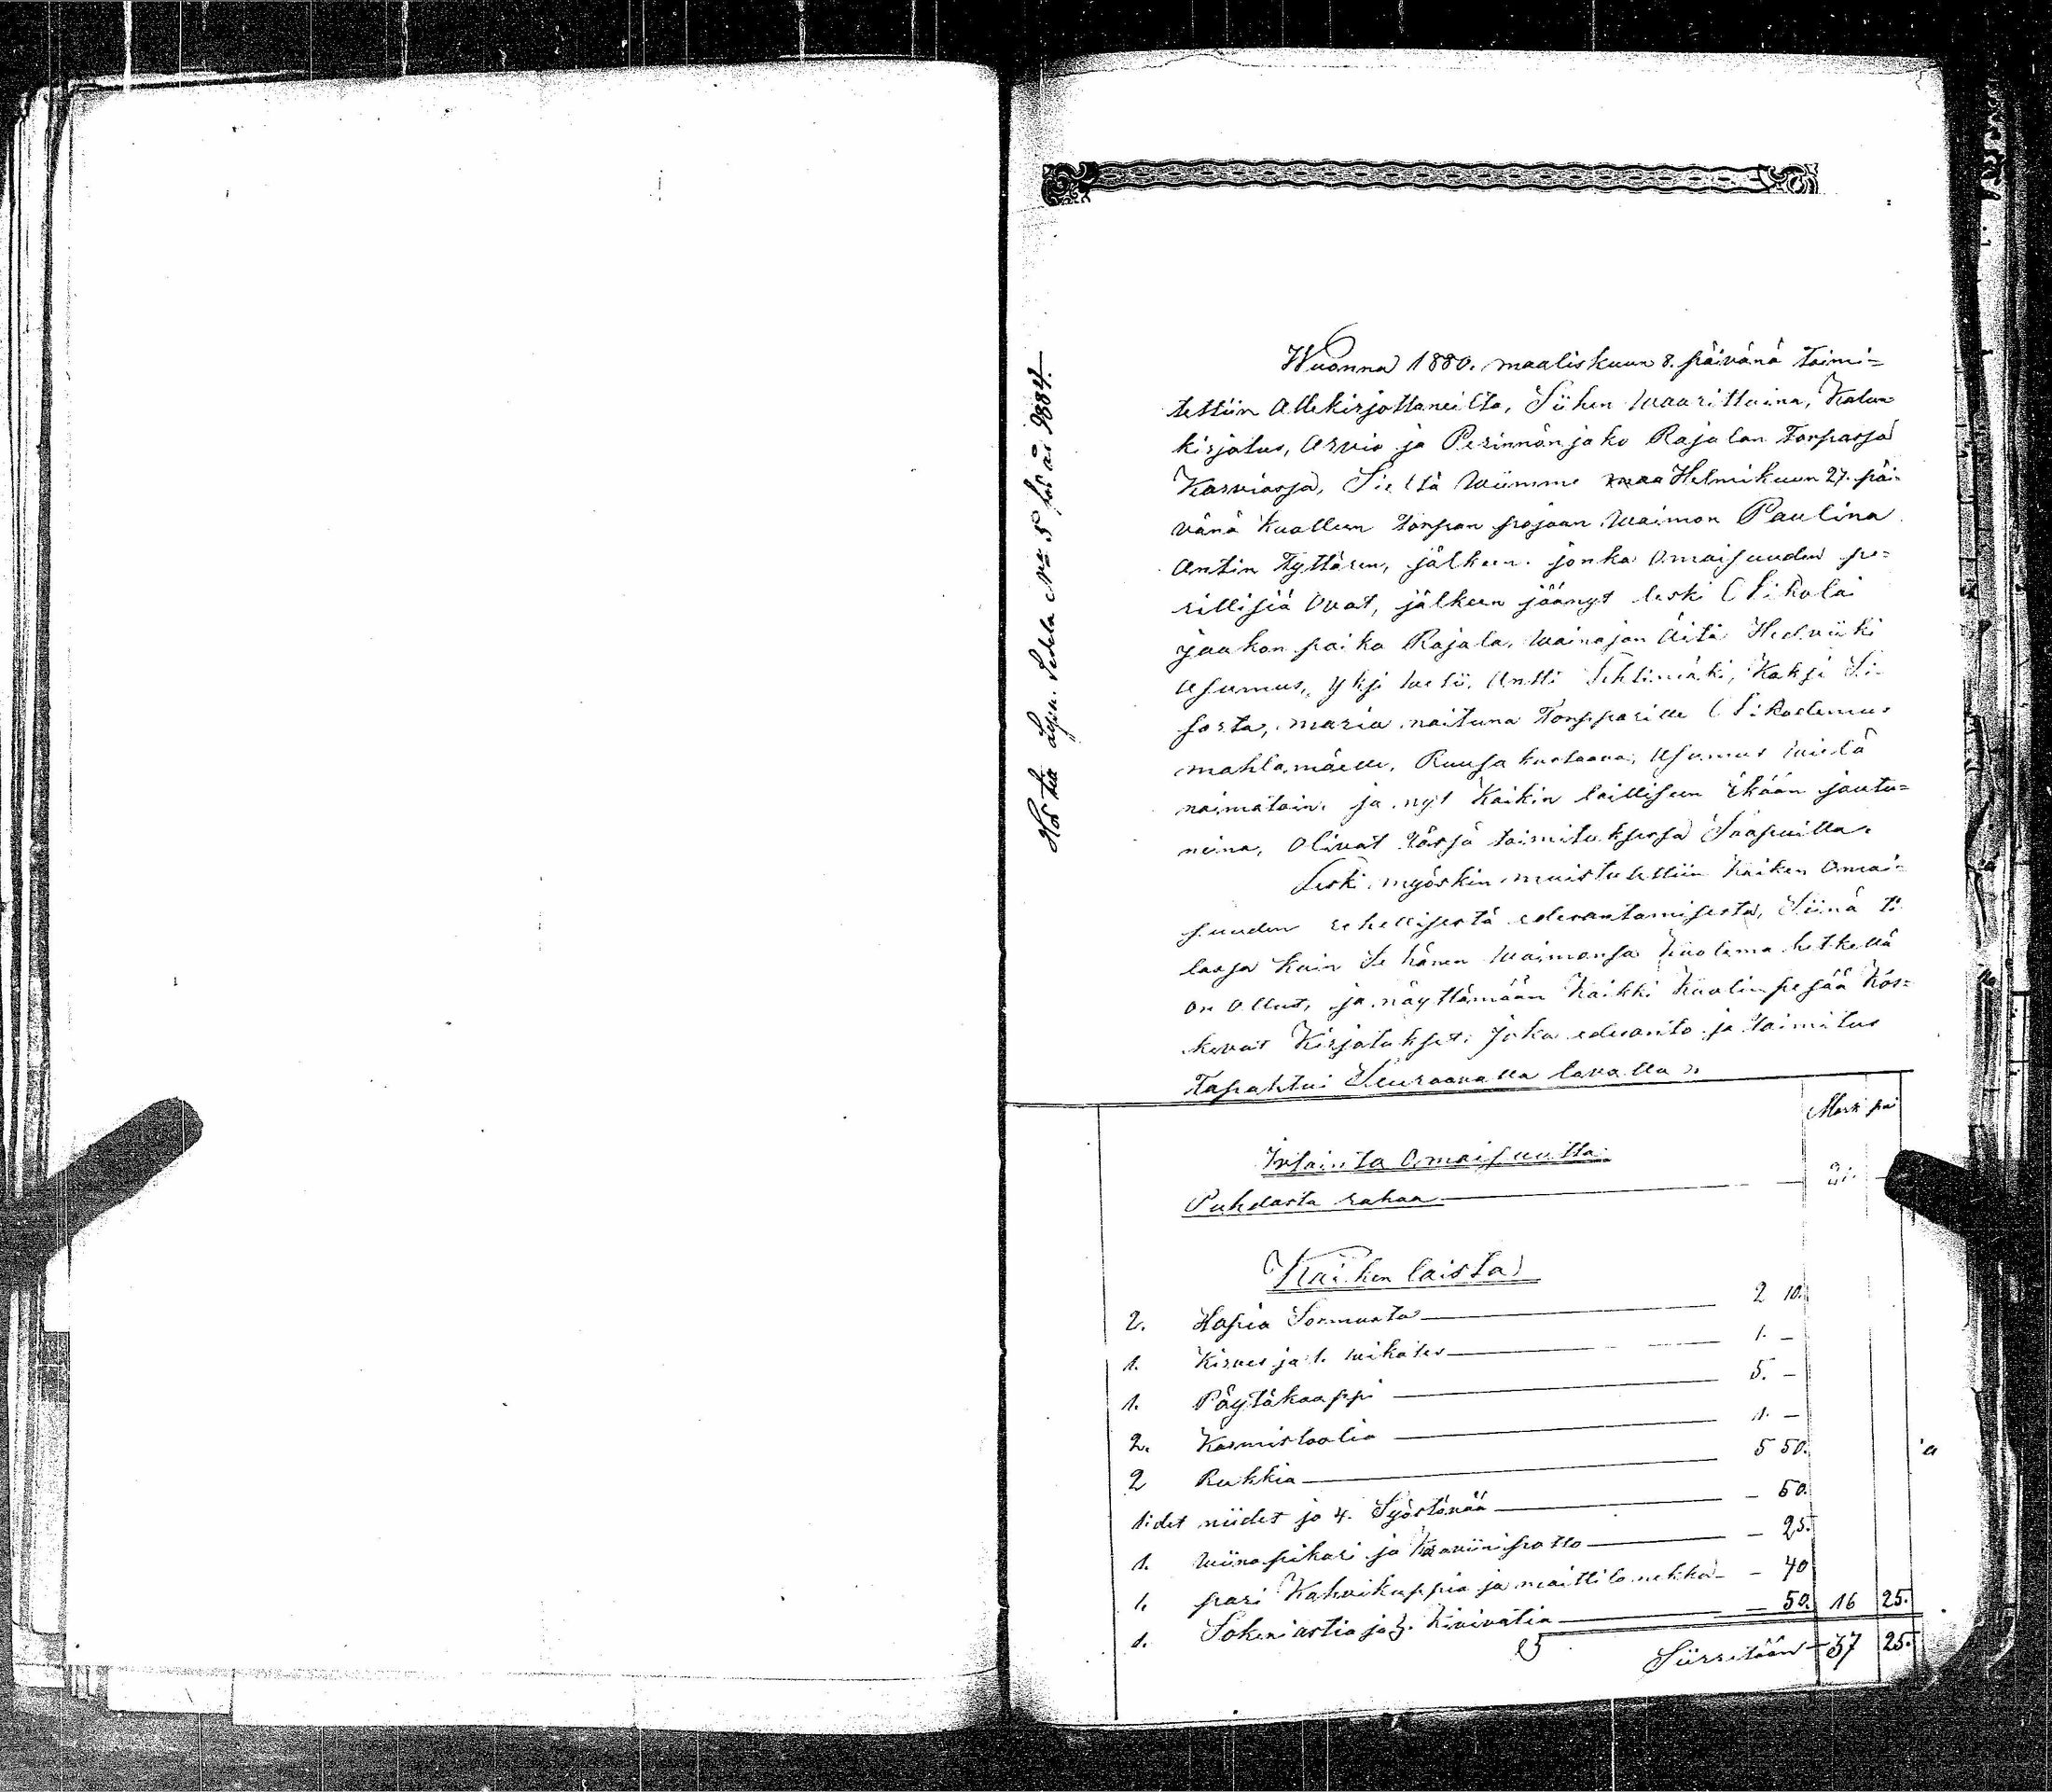 Hör till Syn. Sedeln No 5 för år 1884.
Wuonna 1880. maaliskuun 8. päivänä toimi=
tettiin Allekirjottaneilta, Siihen waarittuina, Kalun
kirjotus, Arvio ja Perinnönjako Rajalan Torpassa
Karviassa, Sieltä wiimme Helmikuun 27. päi-
vänä kuolleen torpan pojaan waimon Paulina
Antin Tyttären, jälkeen. jonka Omaisuuden pe=
rillisiä Ovat, jälkeen jäänyt leski Nikolai
jaakon poika Rajala, wainajan Äiti Hedviiki
Asumus, yksi weli, Antti Lehtimäki, Kaksi Si-
sarta, maria naituna Torpparille Nikodemus
mahlamäelle, Ruusa kustaava, Asumus wielä
naimatoin. ja nyt Kaikin laillisen ikään joutu=
neina, Olivat tässä toimituksessa Saapuilla.
Leski myöskin muistutettiin kaiken Omai=
suuden rehellisestä edesantamisesta, Siinä ti
lassa kuin Se hänen waimonsa kuolema hetkellä
on Ollut, ja näyttämään Kaikki Kuolinpesää Kos=
kevat Kirjotukset; joka edesanto ja toimitus
Tapahtui Seuraavalla tavalla:
Mark pni
Irtainta Omaisuutta.
Puhdasta rahaa
Kaikenlaista
2. Hopia Sormusta 2 10.
1. Kirves ja 1. wikates 1. –
1. Pöytäkaappi 5. –
2. Karmistoolia 1. –
2 Rukkia 5 50.
1:det niidet ja 4. Syöstävää – 50.
1. wiinapikari ja Karaviinipotto – 25.
1. pari Kahvikuppia ja maittilonekka – 40
1. Sokeriastia ja 3. Kivivatia – 50. 16 25.
Siirretään 37 25.